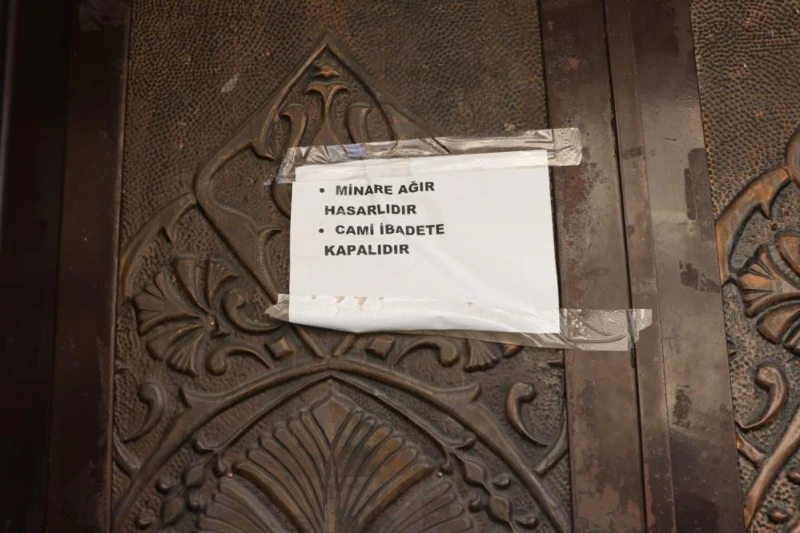 • MİNARE AĞIR
HASARLIDIR
• CAMİ İBADETE
KAPALIDIR